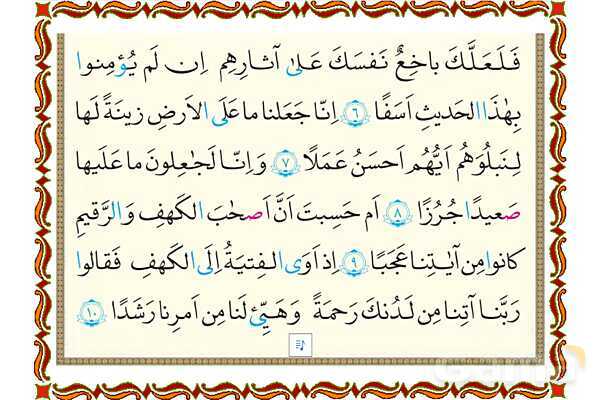 فَلَعَلَّكَ باخِعٌ نَفسَكَ عَلىٰ آثارِهِم اِن لَم يُؤمِنوا
بِهٰذَا الحَديثِ اَسَفًا ﴿٦﴾ اِنّا جَعَلنا ما عَلَى الاَرضِ زينَةً لَها
لِنَبلُوَهُم اَيُّهُم اَحسَنُ عَمَلًا ﴿٧﴾ وَ اِنّا لَجاعِلونَ ما عَلَيها
صَعيدًا جُرُزًا ﴿٨﴾ اَم حَسِبتَ اَنَّ اَصحٰبَ الكَهفِ وَ الرَّقيمِ
كانوا مِن آياتِنا عَجَبًا ﴿٩﴾ اِذ اَوَى الفِتيَةُ اِلَى الكَهفِ فَقالوا
رَبَّنا آتِنا مِن لَدُنكَ رَحمَةً وَ هَيِّئ لَنا مِن اَمرِنا رَشَدًا ﴿١٠﴾